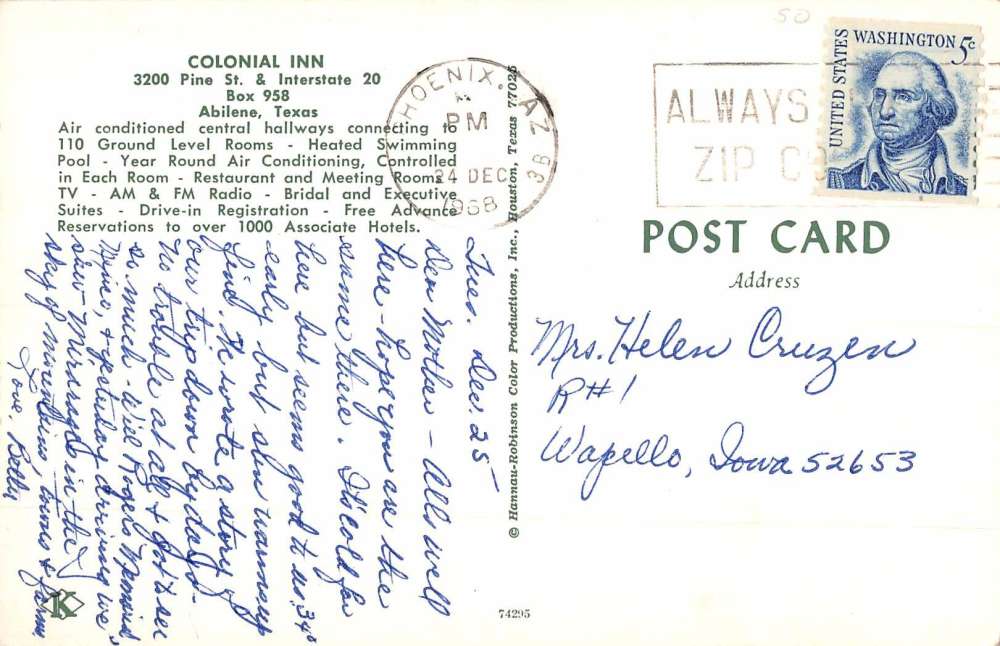 50
COLONIAL INN
3200 Pine St. & Interstate 20
Box 958
Abilene, Texas
Air conditioned central hallways connecting to
110 Ground Level Rooms - Heated Swimming
Pool - Year Round Air Conditioning, Controlled
in Each Room - Restaurant and Meeting Rooms
TV - AM & FM Radio - Bridal and Executive
Suites - Drive-in Registration - Free Advance
Reservations to over 1000 Associate Hotels.
Tues. Dec. 25
Dear Mother - All is well
here - hope you are the
same there. It's cold for
here but seems good to us. 34°
early but sun warms up
find. He wrote a story of
our trip down by days -
no trouble at all & got to see
so much - Will Rogers Memorial
& yesterday driving we
saw Mirages in the
sky of mountains towns & farms
Love, Betty
K
© Hannau-Robinson Color Productions, Inc., Houston, Texas 77025
74295
PHOENIX, AZ
PM
24 DEC
1968
3B
ALWAYS
ZIP CO
UNITED STATES
WASHINGTON 5c
POST CARD
Address
Mrs. Helen Cruzen
R#1
Wapello, Iowa 52653